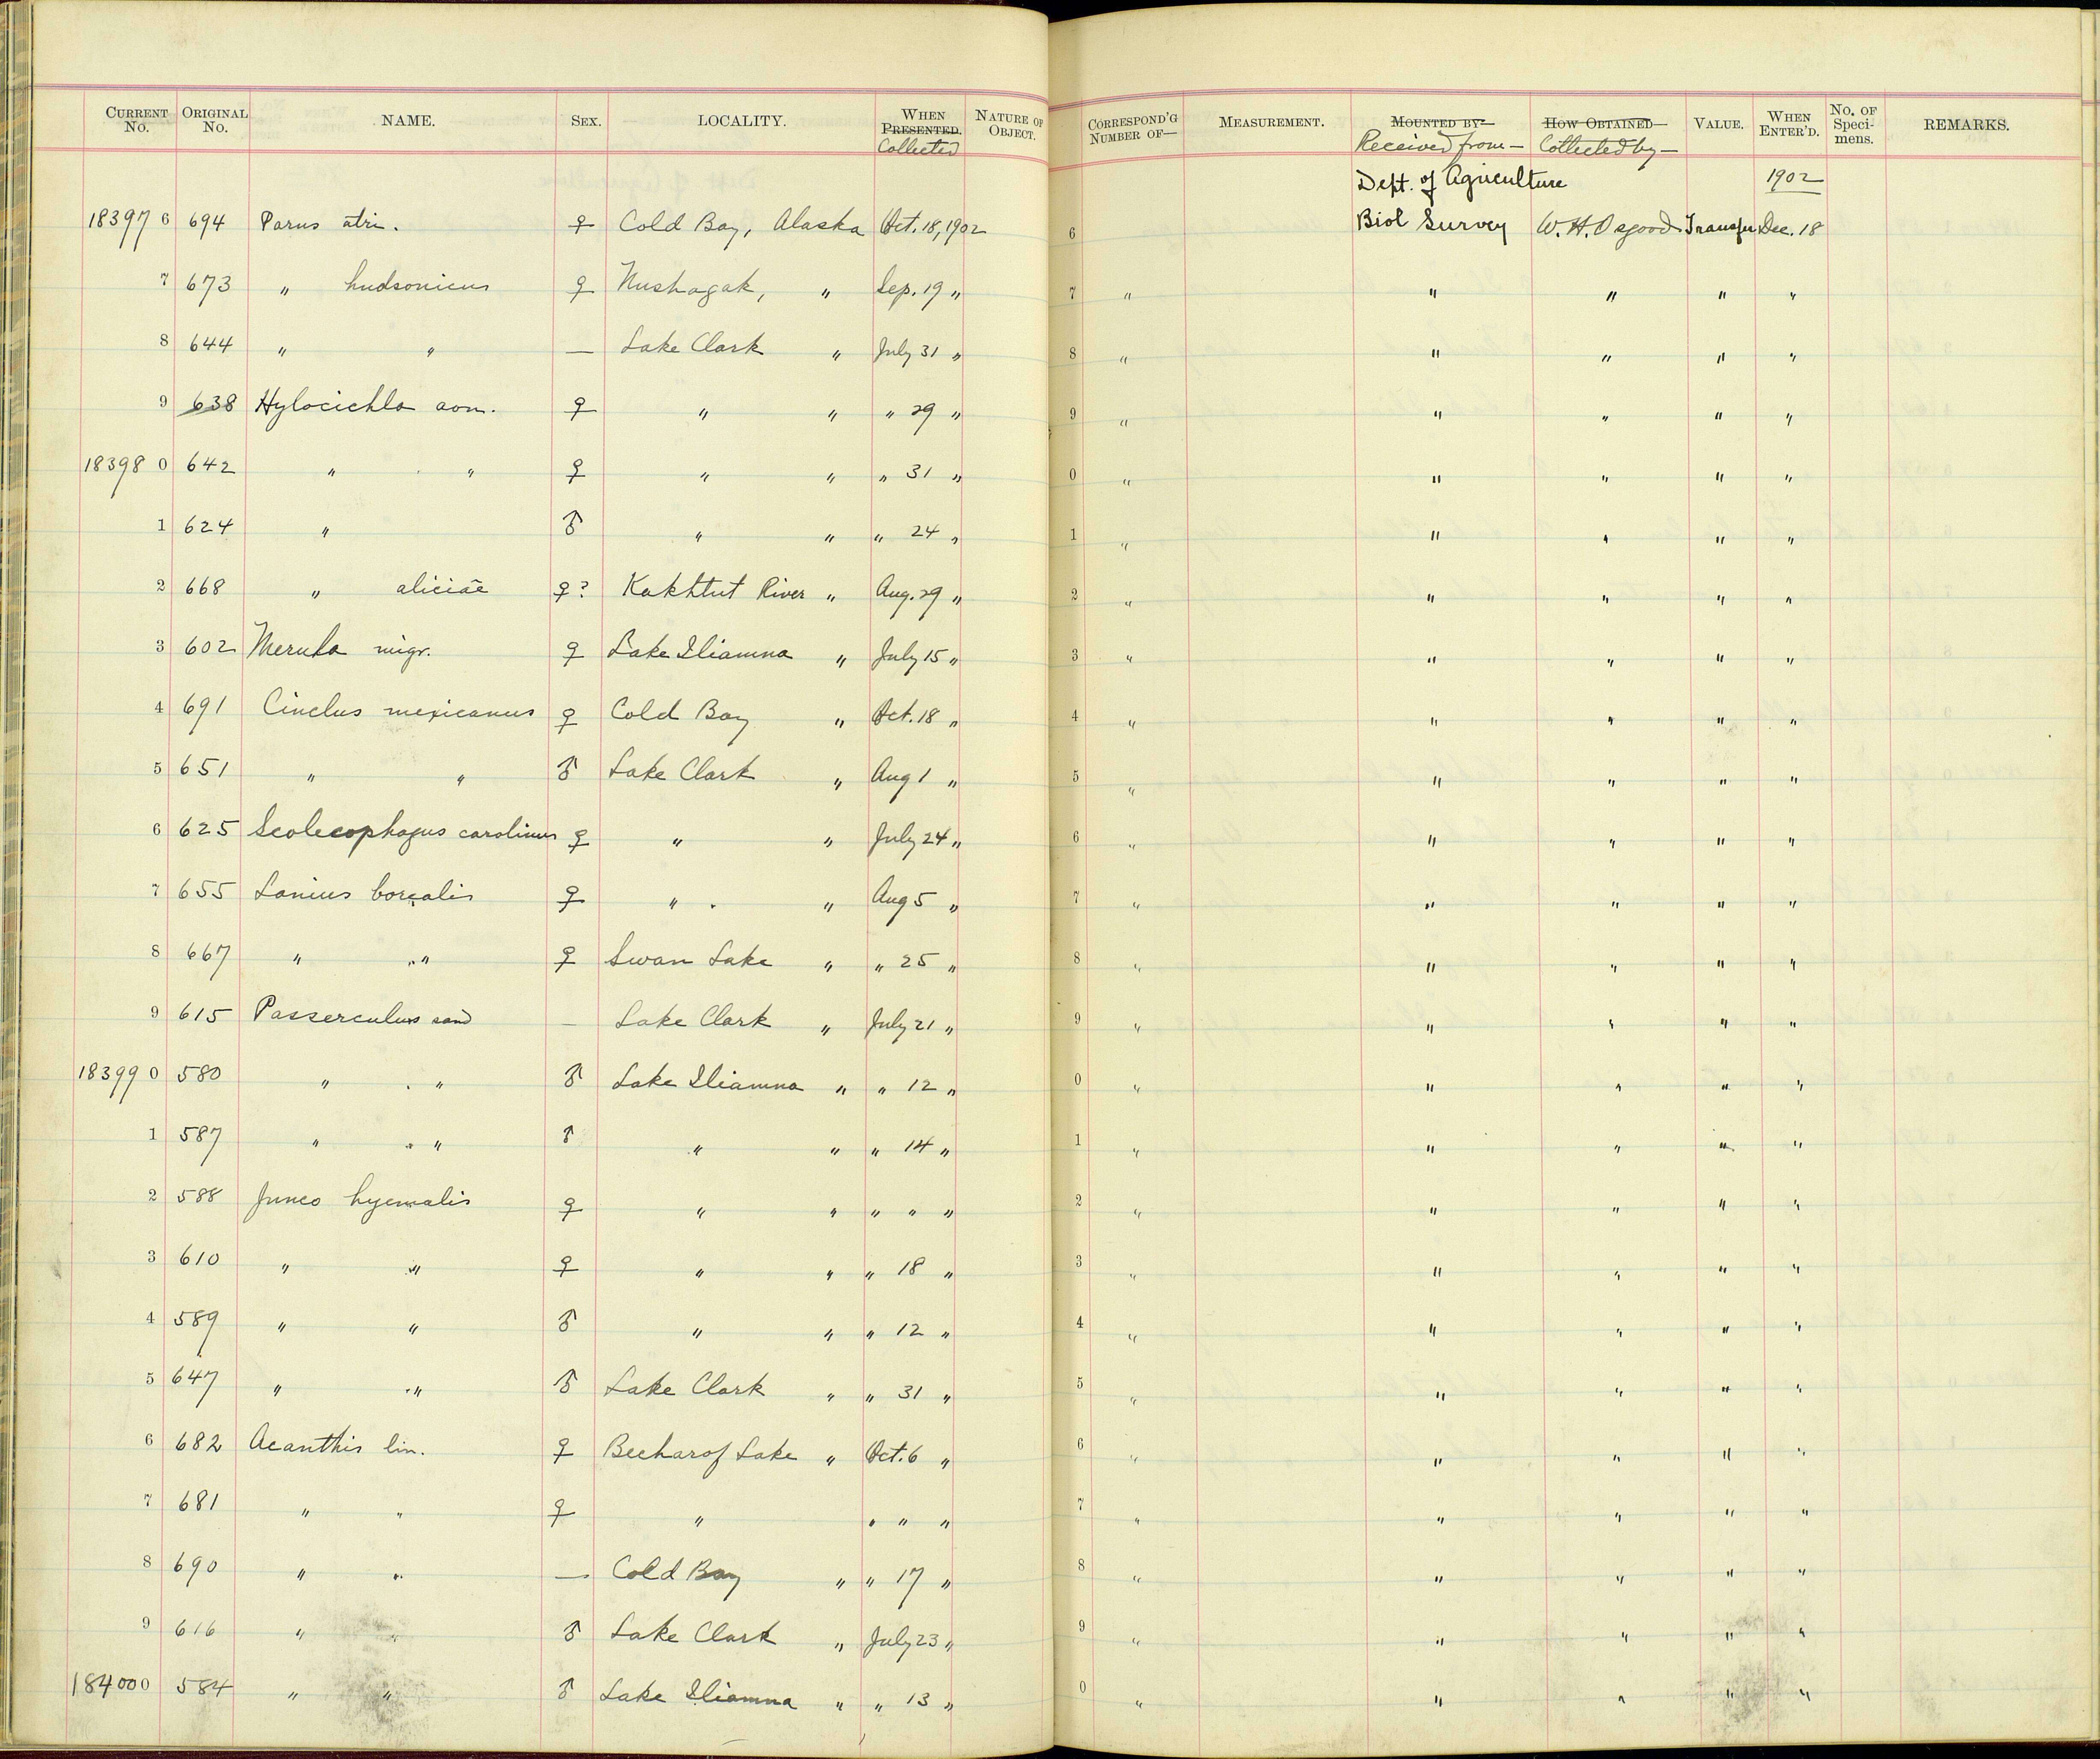 CURRENT No. ORIGINAL No. NAME. SEX. LOCALITY. WHEN PRESENTED. Collected NATURE OF OBJECT. CORRESPOND'G NUMBER OF— MEASUREMENT. MOUNTED BY— Received from— HOW OBTAINED— Collected by— VALUE. WHEN ENTER'D. No. OF Speci-mens. REMARKS.
Dept. of Agriculture 1902
18397 6 694 Parus atri. ♀ Cold Bay, Alaska Oct. 18, 1902 6 Biol Survey W. H. Osgood Transfer Dec. 18
7 673 " hudsonicus ♀ Nushagak, " Sep. 19 " 7 " " " " "
8 644 " " — Lake Clark " July 31 " 8 " " " " "
9 638 Hylocichla aon. ♀ " " " 29 " 9 " " " " "
18398 0 642 " " ♀ " " " 31 " 0 " " " " "
1 624 " ♂ " " " 24 " 1 " " " " "
2 668 " aliciae ♀? Kakhtut River " Aug. 29 " 2 " " " " "
3 602 Merula migr. ♀ Lake Iliamna " July 15 " 3 " " " " "
4 691 Cinclus mexicanus ♀ Cold Bay " Oct. 18 " 4 " " " " "
5 651 " " ♂ Lake Clark " Aug 1 " 5 " " " " "
6 625 Scolecophagus carolinus ♀ " " July 24 " 6 " " " " "
7 655 Lanius borealis ♀ " " Aug 5 " 7 " " " " "
8 667 " " ♀ Swan Lake " " 25 " 8 " " " " "
9 615 Passerculus sand — Lake Clark " July 21 " 9 " " " " "
18399 0 580 " " ♂ Lake Iliamna " " 12 " 0 " " " " "
1 587 " " ♂ " " " 14 " 1 " " " " "
2 588 Junco hyemalis ♀ " " " " " 2 " " " " "
3 610 " " ♀ " " " 18 " 3 " " " " "
4 589 " " ♂ " " " 12 " 4 " " " " "
5 647 " " ♂ Lake Clark " " 31 " 5 " " " " "
6 682 Acanthis lin. ♀ Becharof Lake " Oct. 6 " 6 " " " " "
7 681 " " ♀ " " " " 7 " " " " "
8 690 " " — Cold Bay " " 17 " 8 " " " " "
9 616 " " ♂ Lake Clark " July 23 " 9 " " " " "
18400 0 584 " " ♂ Lake Iliamna " " 13 " 0 " " " " "